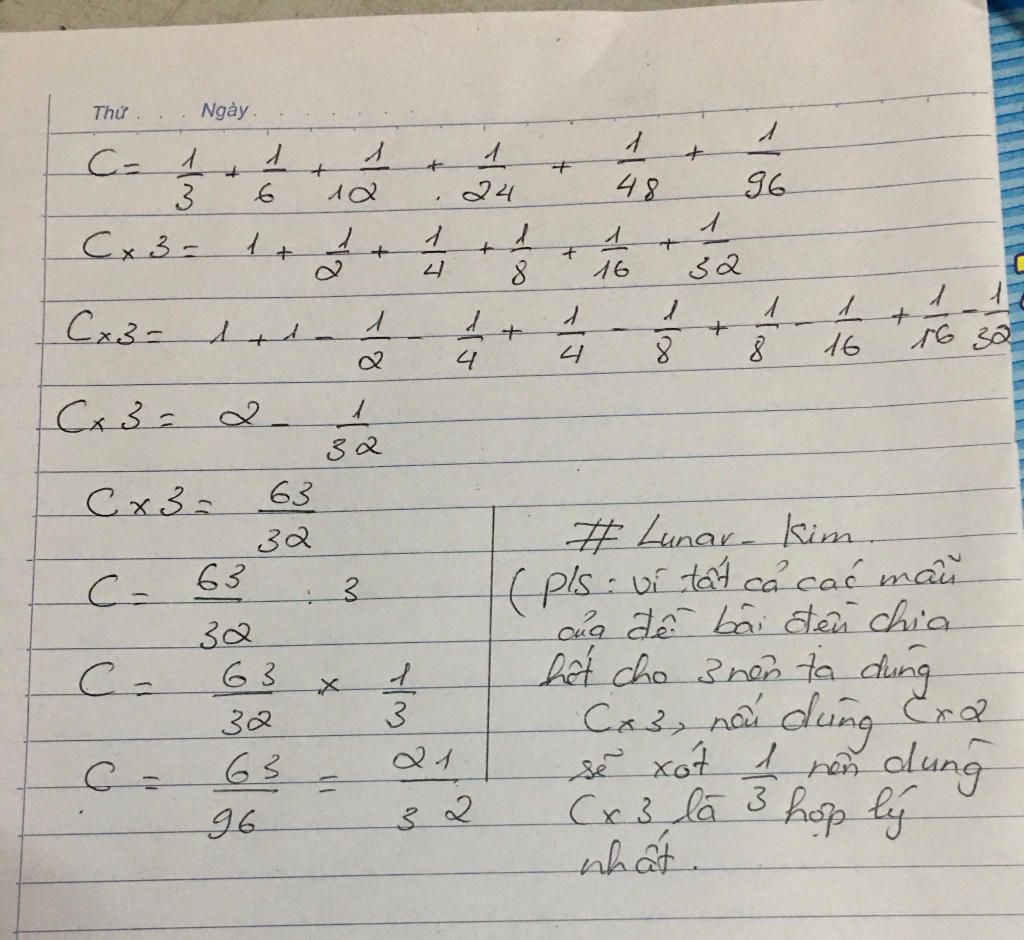 Thứ . . . . Ngày . . . . . . . .
C = 1/3 + 1/6 + 1/12 + 1/24 + 1/48 + 1/96
C x 3 = 1 + 1/2 + 1/4 + 1/8 + 1/16 + 1/32
C x 3 = 1 + 1 - 1/2 - 1/4 + 1/4 - 1/8 + 1/8 - 1/16 + 1/16 - 1/32
C x 3 = 2 - 1/32
C x 3 = 63/32
C = 63/32 : 3
C = 63/32 x 1/3
C = 63/96 = 21/32
# Lunar - Kim.
(P/s: vì tất cả các mẫu
của đề bài đều chia
hết cho 3 nên ta dùng
C x 3, nếu dùng C x 2
sẽ xót 1/3 nên dùng
C x 3 là hợp lý
nhất.